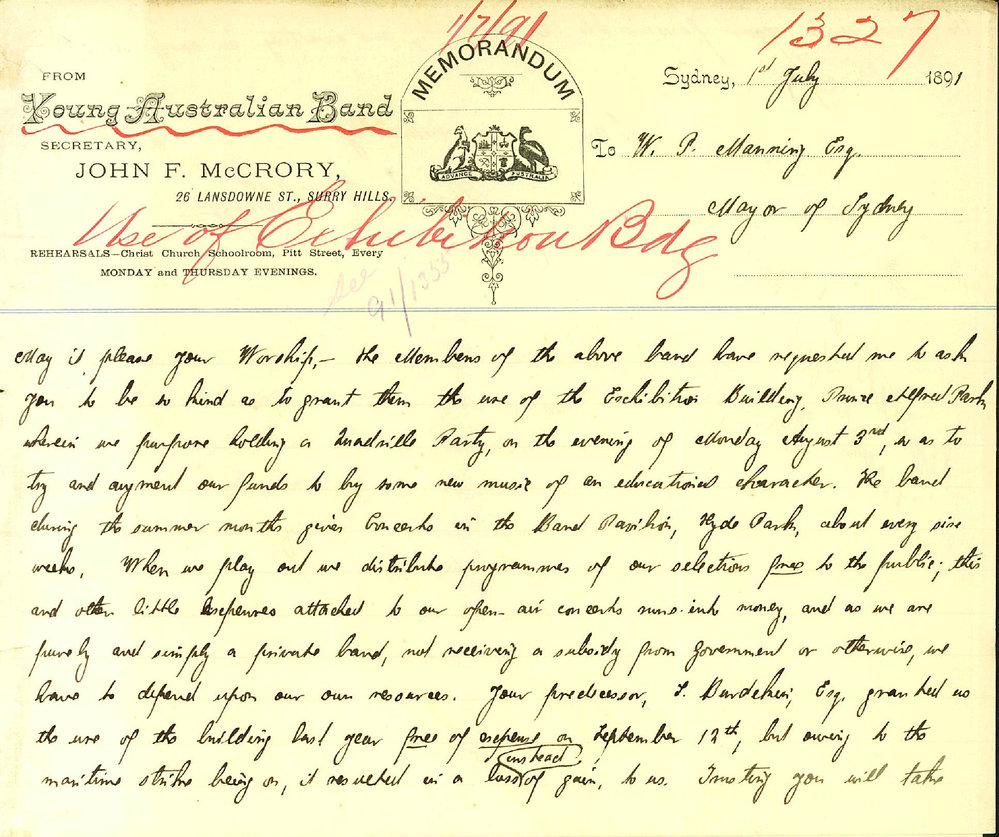 1/7/91
1327
MEMORANDUM
ADVANCE AUSTRALIA
FROM
Young Australian Band
SECRETARY,
JOHN F. McCRORY,
26 LANSDOWNE ST., SURRY HILLS.
REHEARSALS—Christ Church Schoolroom, Pitt Street, Every
MONDAY and THURSDAY EVENINGS.
Sydney, 1st July 1891
To W. P. Manning Esq.
Mayor of Sydney
Use of Exhibition Bdg
See
91/1355
May it please your Worship,— The Members of the above band have requested me to ask
you to be so kind as to grant them the use of the Exhibition Building, Prince Alfred Park
wherein we purpose holding a Quadrille Party, on the evening of Monday August 3rd, so as to
try and augment our funds to buy some new music of an educational character. The band
during the summer months gives Concerts in the Band Pavilion, Hyde Park, about every six
weeks. When we play out we distribute programmes of our selections free to the public; this
and other little expenses attached to our open-air concerts runs into money, and as we are
purely and simply a private band, not receiving a subsidy from Government or otherwise, we
have to depend upon our own resources. Your predecessor, S. Burdekin, Esq. granted us
the use of the building last year free of expense on September 12th, but owing to the
maritime strike being on, it resulted in a loss instead of gain, to us. Trusting you will take